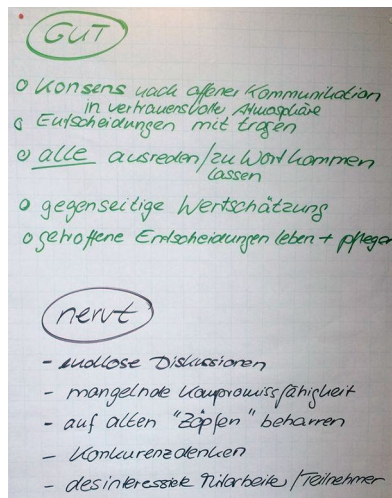 GUT
o Konsens nach offener Kommunikation
in vertrauensvoller Atmosphäre
o Entscheidungen mit tragen
o alle ausreden/zu Wort kommen
lassen
o gegenseitige Wertschätzung
o getroffene Entscheidungen leben + pflegen
nervt
- endlose Diskussionen
- mangelnde Kompromissfähigkeit
- auf alten "Zöpfen" beharren
- Konkurenzdenken
- desinteressierte Mitarbeiter/Teilnehmer